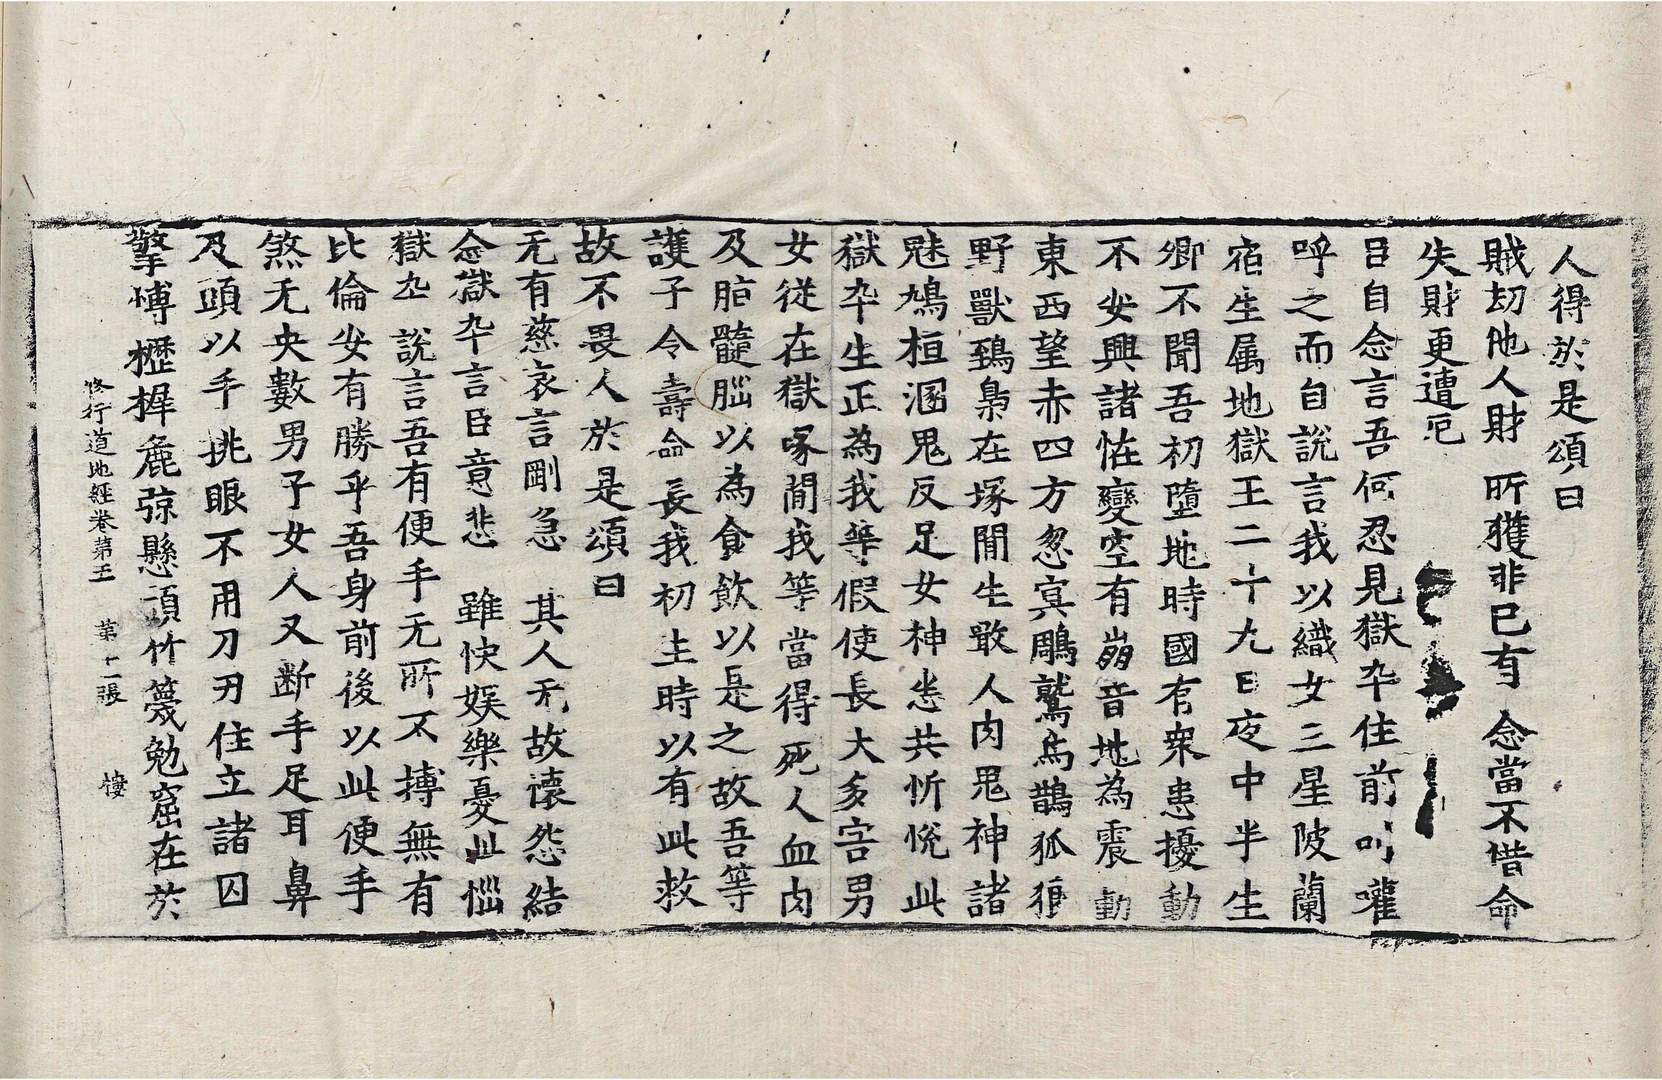 人得於是頌曰
賊劫他人財　所獲非已有　念當不惜命
失財更遭厄
臣自念言吾何忍見獄卒住前叫嚾
呼之而自說言我以織女三星陂蘭
宿生属地獄王二十九日夜中半生
卿不聞吾初墮地時國有衆患擾動
不安興諸恠變空有崩音地為震動
東西望赤四方忽冥鵰鷲烏鵲狐狼
野獸鵄梟在塚間生敢人肉鬼神諸
魅鳩桓溷鬼反足女神悉共忻悅此
獄卒生正為我等假使長大多害男
女從在獄啄間我等當得死人血肉
及脂髓腦以為食飲以是之故吾等
護子令壽命長我初生時以有此救
故不畏人於是頌曰
无有慈哀言剛急　其人无故懷怨結
念獄卒言臣意悲　雖快娱樂憂此惱
獄卒說言吾有便手无所不搏無有
比倫安有勝乎吾身前後以此便手
煞无央數男子女人又断手足耳鼻
及頭以手挑眼不用刀刃住立諸囚
擎愽櫪榫麁弶懸頭竹篾勉窟在於
修行道地經卷第五　第十二張　樓